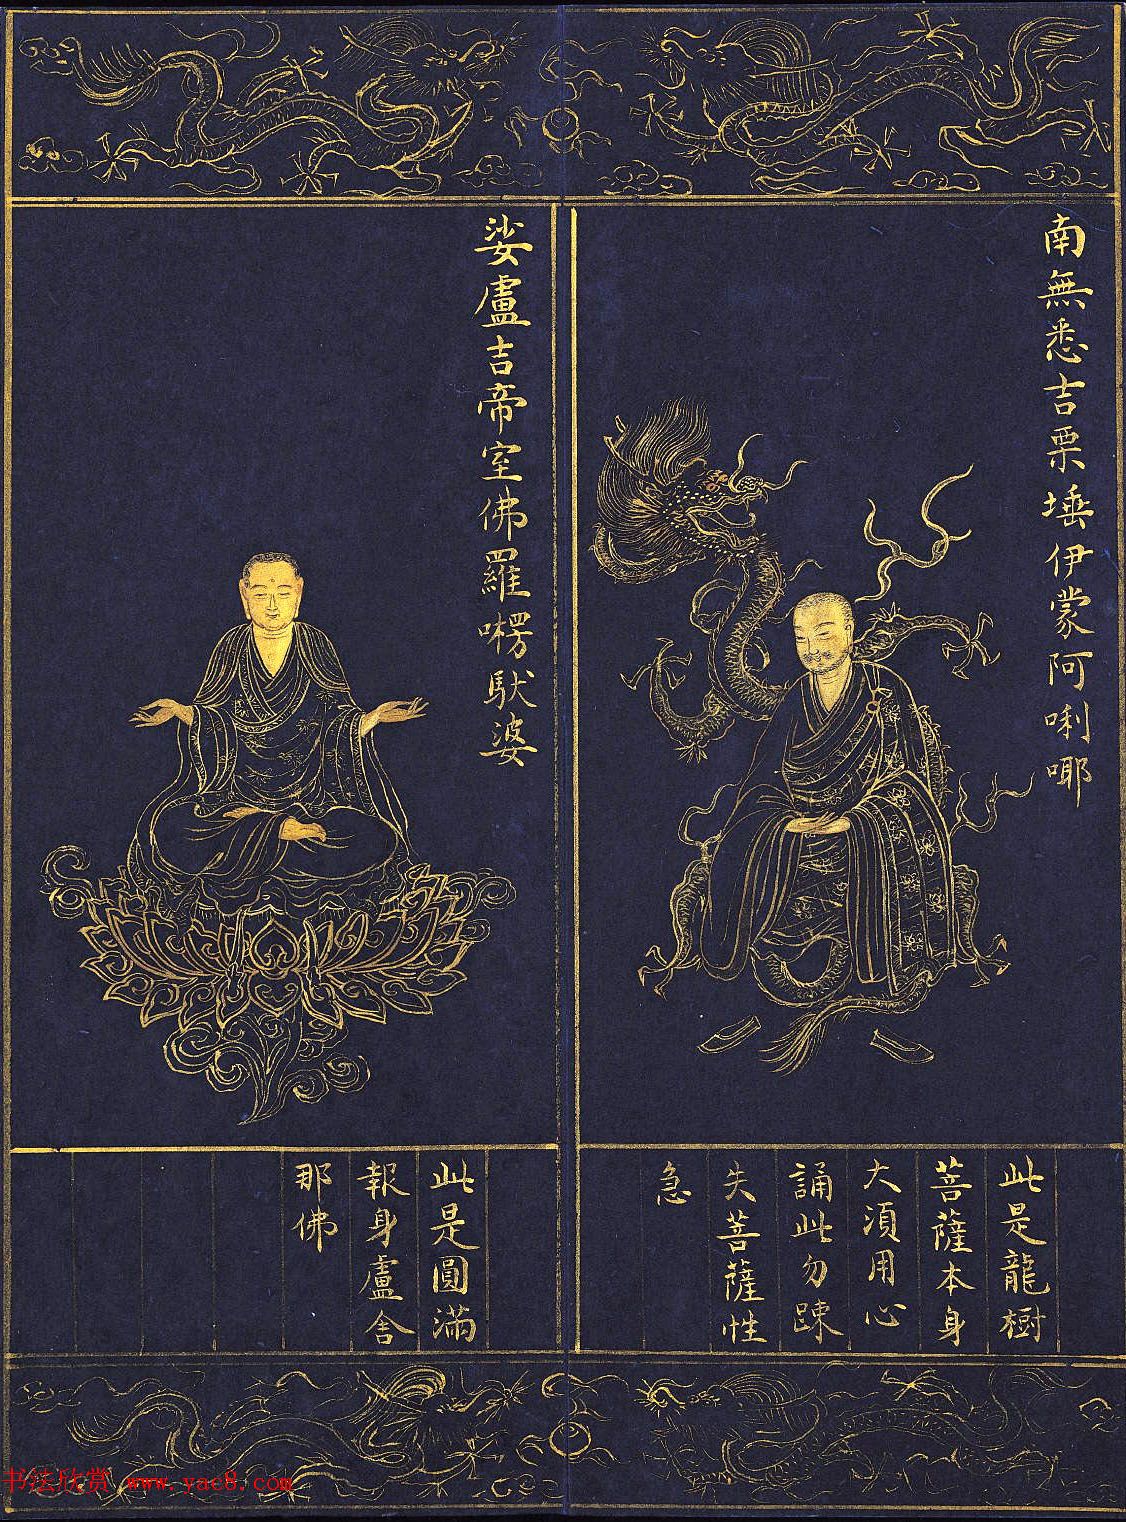 南無悉吉栗埵伊蒙阿唎㖿
此是龍樹
菩薩本身
大須用心
誦此勿踈
失菩薩性
急
娑盧吉帝室佛羅㘄馱婆
此是圓滿
報身盧舍
那佛
书法欣赏 www.yac8.com